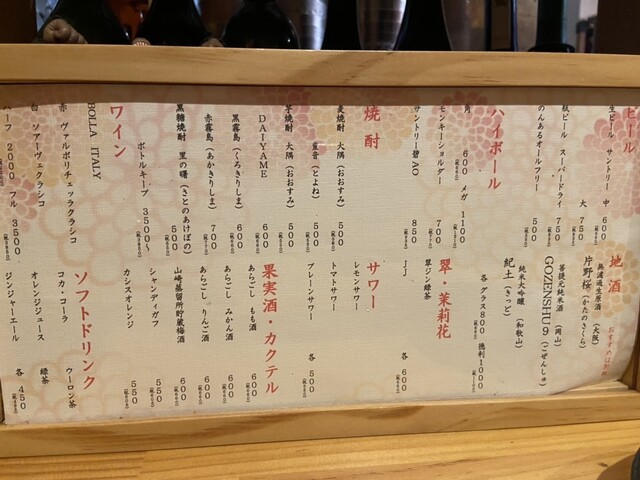 ビール
生ビール サントリー 中 600
大 750
瓶ビール スーパードライ 750
のんあるオールフリー 500
ハイボール
角 600 メガ 1100
モンキーショルダー 700
サントリー碧AO 850
焼酎
麦焼酎 大隅（おおすみ） 500
豊音（とよね） 500
芋焼酎 大隅（おおすみ） 500
DAIYAME 600
黒霧島（くろきりしま） 600
赤霧島（あかきりしま） 700
黒糖焼酎 里の曙（さとのあけぼの） 500
ボトルキープ 3500〜
ワイン
BOLLA ITALY
赤 ヴァルポリチェッラクラシコ
白 ソアーヴェクラシコ
ハーフ 2000 フル 3500
地酒 おすすめは別紙
無濾過生原酒（大阪）
片野桜（かたのさくら）
菩提元純米酒（岡山）
GOZENSHU9（ごぜんしゅ）
純米大吟醸（和歌山）
紀土（きっど）
各 グラス800 徳利1000
翠・茉莉花
翠ジン緑茶
JJ 各 600
サワー
レモンサワー
トマトサワー
プレーンサワー 各 500
果実酒・カクテル
あらごし もも酒 600
あらごし みかん酒 600
あらごし りんご酒 600
山崎蒸留所貯蔵梅酒 600
シャンディガフ 550
カシスオレンジ 550
ソフトドリンク
コカ・コーラ ウーロン茶
オレンジジュース 緑茶
ジンジャーエール 各 450